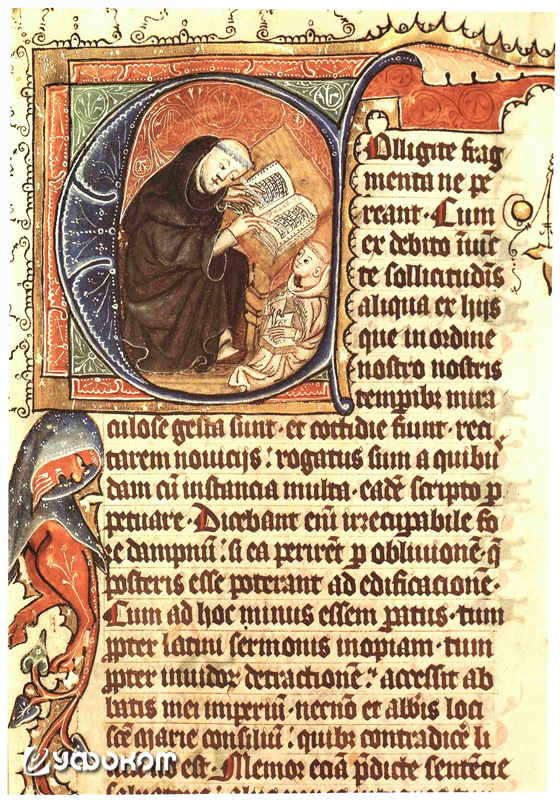 Colligite frag
menta ne pe
reant · Cum
ex debito iniūc
te sollicitudīs
aliqua ex hijs
que in ordine
nostro nostris
temporibꝰ mira
culose gesta sunt · et cottidie fiunt · reci
tarem nouicijs : rogatus sum a quibus
dam cū instancia multa · eadē scripto ꝑ
petuare · Dicebant enī irrecuꝑabile fo
re dampnū : si ea perirēt ꝑ obliuionē · q̄
posteris esse poterant ad edificacionē ·
Cum ad hoc minus essem paratus · tum
ꝓpter latini sermonis inopiam · tum
ꝓpter inuidoꝝ detractionē : accessit ab
batis mei imperiū · necnō et abbīs loci
scē marie consiliū : quibꝰ contradicē li
est · Memor eciā p̄dicte sentēcie
УФОКОМ